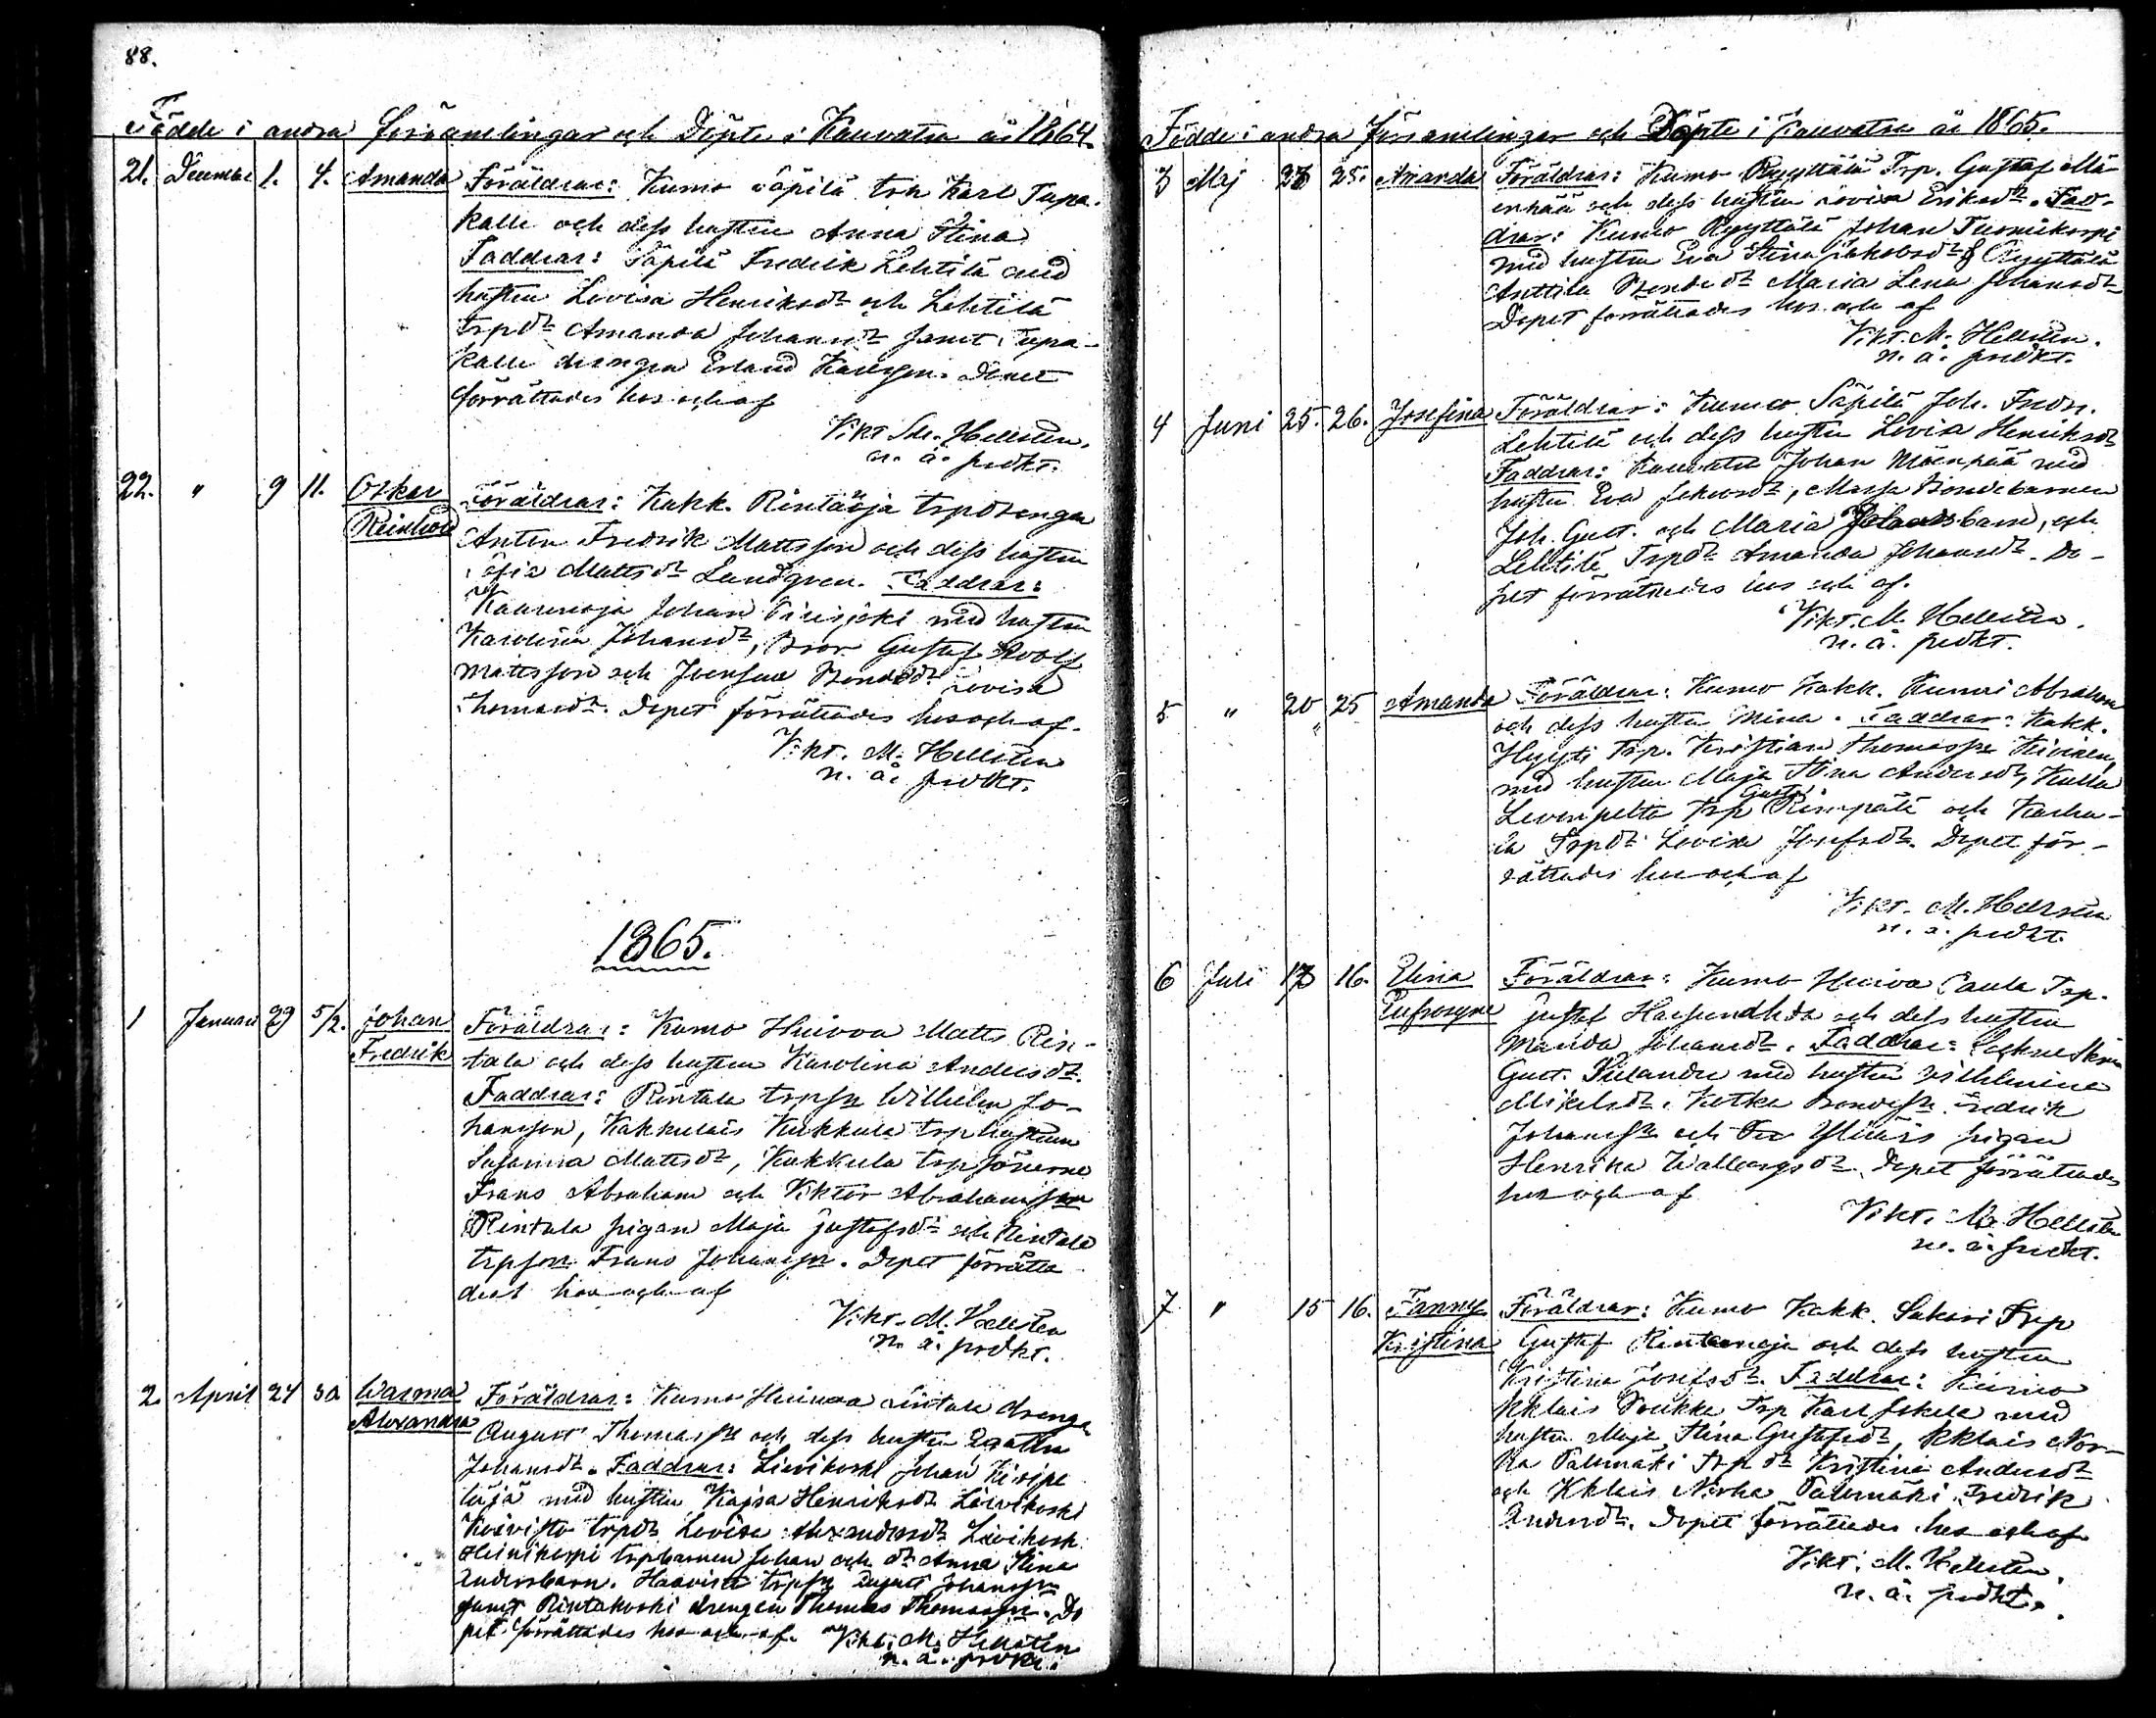 88.
Födde i andra församlingar och Döpte i Kauvatsa år 1864.
21. December 1. 4. Amanda Föräldrar: Kumo Säpilä trp Karl Tupa-
kalle och dess hustru Anna Stina
Faddrar: Säpilä Fredrik Lehtilä med
hustru Lovisa Henriksdr och Lehtilä
trpdr Amanda Johansdr samt Tupa-
kalle drengen Erland Karlsson. Dopet
förrättades hos och af
Vikt. M. Hellsten.
n. ä. predkt.
22. " 9 11. Oskar Föräldrar: Kakk. Rintaoja trpdrengen
Reinhold Anton Fredrik Mattsson och dess hustru
Sofia Mattsdr Lundgren. Faddrar:
Johan med hustru
Karolina Johansdr, Gustaf Adolf
Mattsson och Bondedr Lovisa
Thomasdr. Dopet förrättades hos och af.
Vikt. M. Hellsten
n. ä. predkt.
1865.
1 Januari 29 5/2. Johan Föräldrar: Kumo Huivoo Matts Rin-
Fredrik tala och dess hustru Karolina Andersdr.
Faddrar: Rintala trpsn Wilhelm Jo-
hansson, Kakkulais Kukkula trphustrun
Susanna Mattsdr, Kukkula trpsönerne
Frans Abraham och Viktor Abrahamsson
Rintala pigan Maja Gustafsdr och Rintala
trpson Frans Johanssn. Dopet förrätta-
dest hos och af
Vikt. M. Hellsten
n. ä. predkt.
2. April 24 30 Warma Föräldrar: Kumo Huivoo Rintala drengen
Alexandra August Thomassn och dess hustru
Johansdr. Faddrar: Lievikoski Johan
med hustru Kajsa Henriksdr Lievikoski
Koivisto trpdr Lovisa Alexandersdr Lievikoski
Heinikorpi trpbarnen Johan och dr Anna Stina
Andersbarn. Haavisto trpsn August Johanssn
samt Rintakoski drengen Thomas Thomassn. Do-
pet förrättades hos och af. Vikt. M. Hellsten
n. ä. predkt.
Födde i andra församlingar och Döpte i Kauvatsa år 1865.
3 Maj 23 25. Amanda Föräldrar: Kumo Ryyttälä Trp. Gustaf Mä-
enpää och dess hustru Lovisa Eriksdr. Fad-
drar: Kumo Ryyttälä Johan Tuomikorpi
med hustru Eva Stina Jakobsdr & Ryyttälä
Anttila Bondedr Maria Lena Johansdr
Dopet förrättades hos och af
Vikt. M. Hellsten.
n. ä. predkt.
4 Juni 25. 26. Josefina Föräldrar: Kumo Säpilä Joh. Fredr.
Lehtilä och dess hustru Lovisa Henriksdr
Faddrar: Kauvatsa Johan Mäenpää med
hustru Eva Bondebarnen
Joh. Gust. och Maria Johansbarn, och
Lehtilä Trpdr Amanda Johansdr. Do-
pet förrättades hos och af.
Vikt. M. Hellsten.
n. ä. predkt.
5 " 20 25 Amanda Föräldrar: Kumo Kakk. Abraham
och dess hustru Mina. Faddrar: Kakk.
Hyysti Trp. Kristian Thomassn
med hustru Maja Stina Andersdr, Kulla
Levonpelto trp Gustaf och
Trpdr Lovisa Josefsdr. Dopet för-
rättades hos och af
Vikt. M. Hellsten
n. ä. predkt.
6 Juli 13 16. Elina Föräldrar: Kumo Huivoo Trp.
Eufrosyne Gustaf och dess hustru
Manda Johansdr. Faddrar:
Gust. med hustru Wilhelmina
Mikelsdr. Bondesn Fredrik
Johanssn och pigan
Henrika Dopet förrättades
hos och af
Vikt. M. Hellsten
n. ä. predkt.
7 " 15 16. Fanny Föräldrar: Kumo Kakk. Sakari Trp
Kristina Gustaf Rintaoja och dess hustru
Kristina Josefsdr. Faddrar: Kumo
Kklais Trp Karl med
hustru Maja Stina Gustafsdr, Kklais Nor-
ka Palomäki Trpdr Kristina Andersdr
och Kklais Norka Palomäki Fredrik
Dopet förrättades hos och af
Vikt. M. Hellsten.
n. ä. predkt.